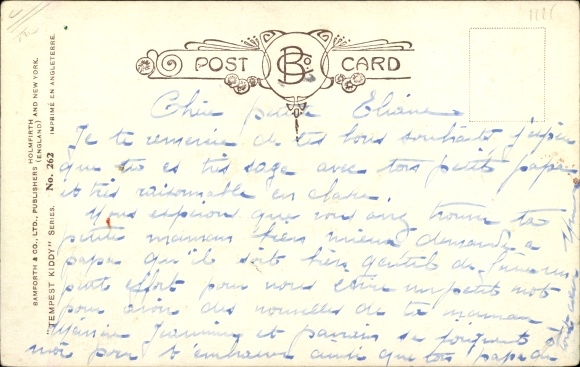 POST CARD
B Co
BAMFORTH & CO., LTD., PUBLISHERS HOLMFIRTH
(ENGLAND) AND NEW YORK.
"TEMPEST KIDDY" SERIES. No. 262 IMPRIMÉ EN ANGLETERRE.
Chère petite Eliane
Je te remercie de tes bons souhaits, j'espère
que tu es très sage avec ton petit papa
et très raisonnable en classe.
Nous espérons que vous avez trouvé ta
petite maman bien mieux, demande à
papa qu'il soit bien gentil de faire un
petit effort pour nous écrire un petit mot
pour avoir des nouvelles de ta maman
Jeannine et parrain se joignent
moi pour t'embrasser ainsi que ton papa